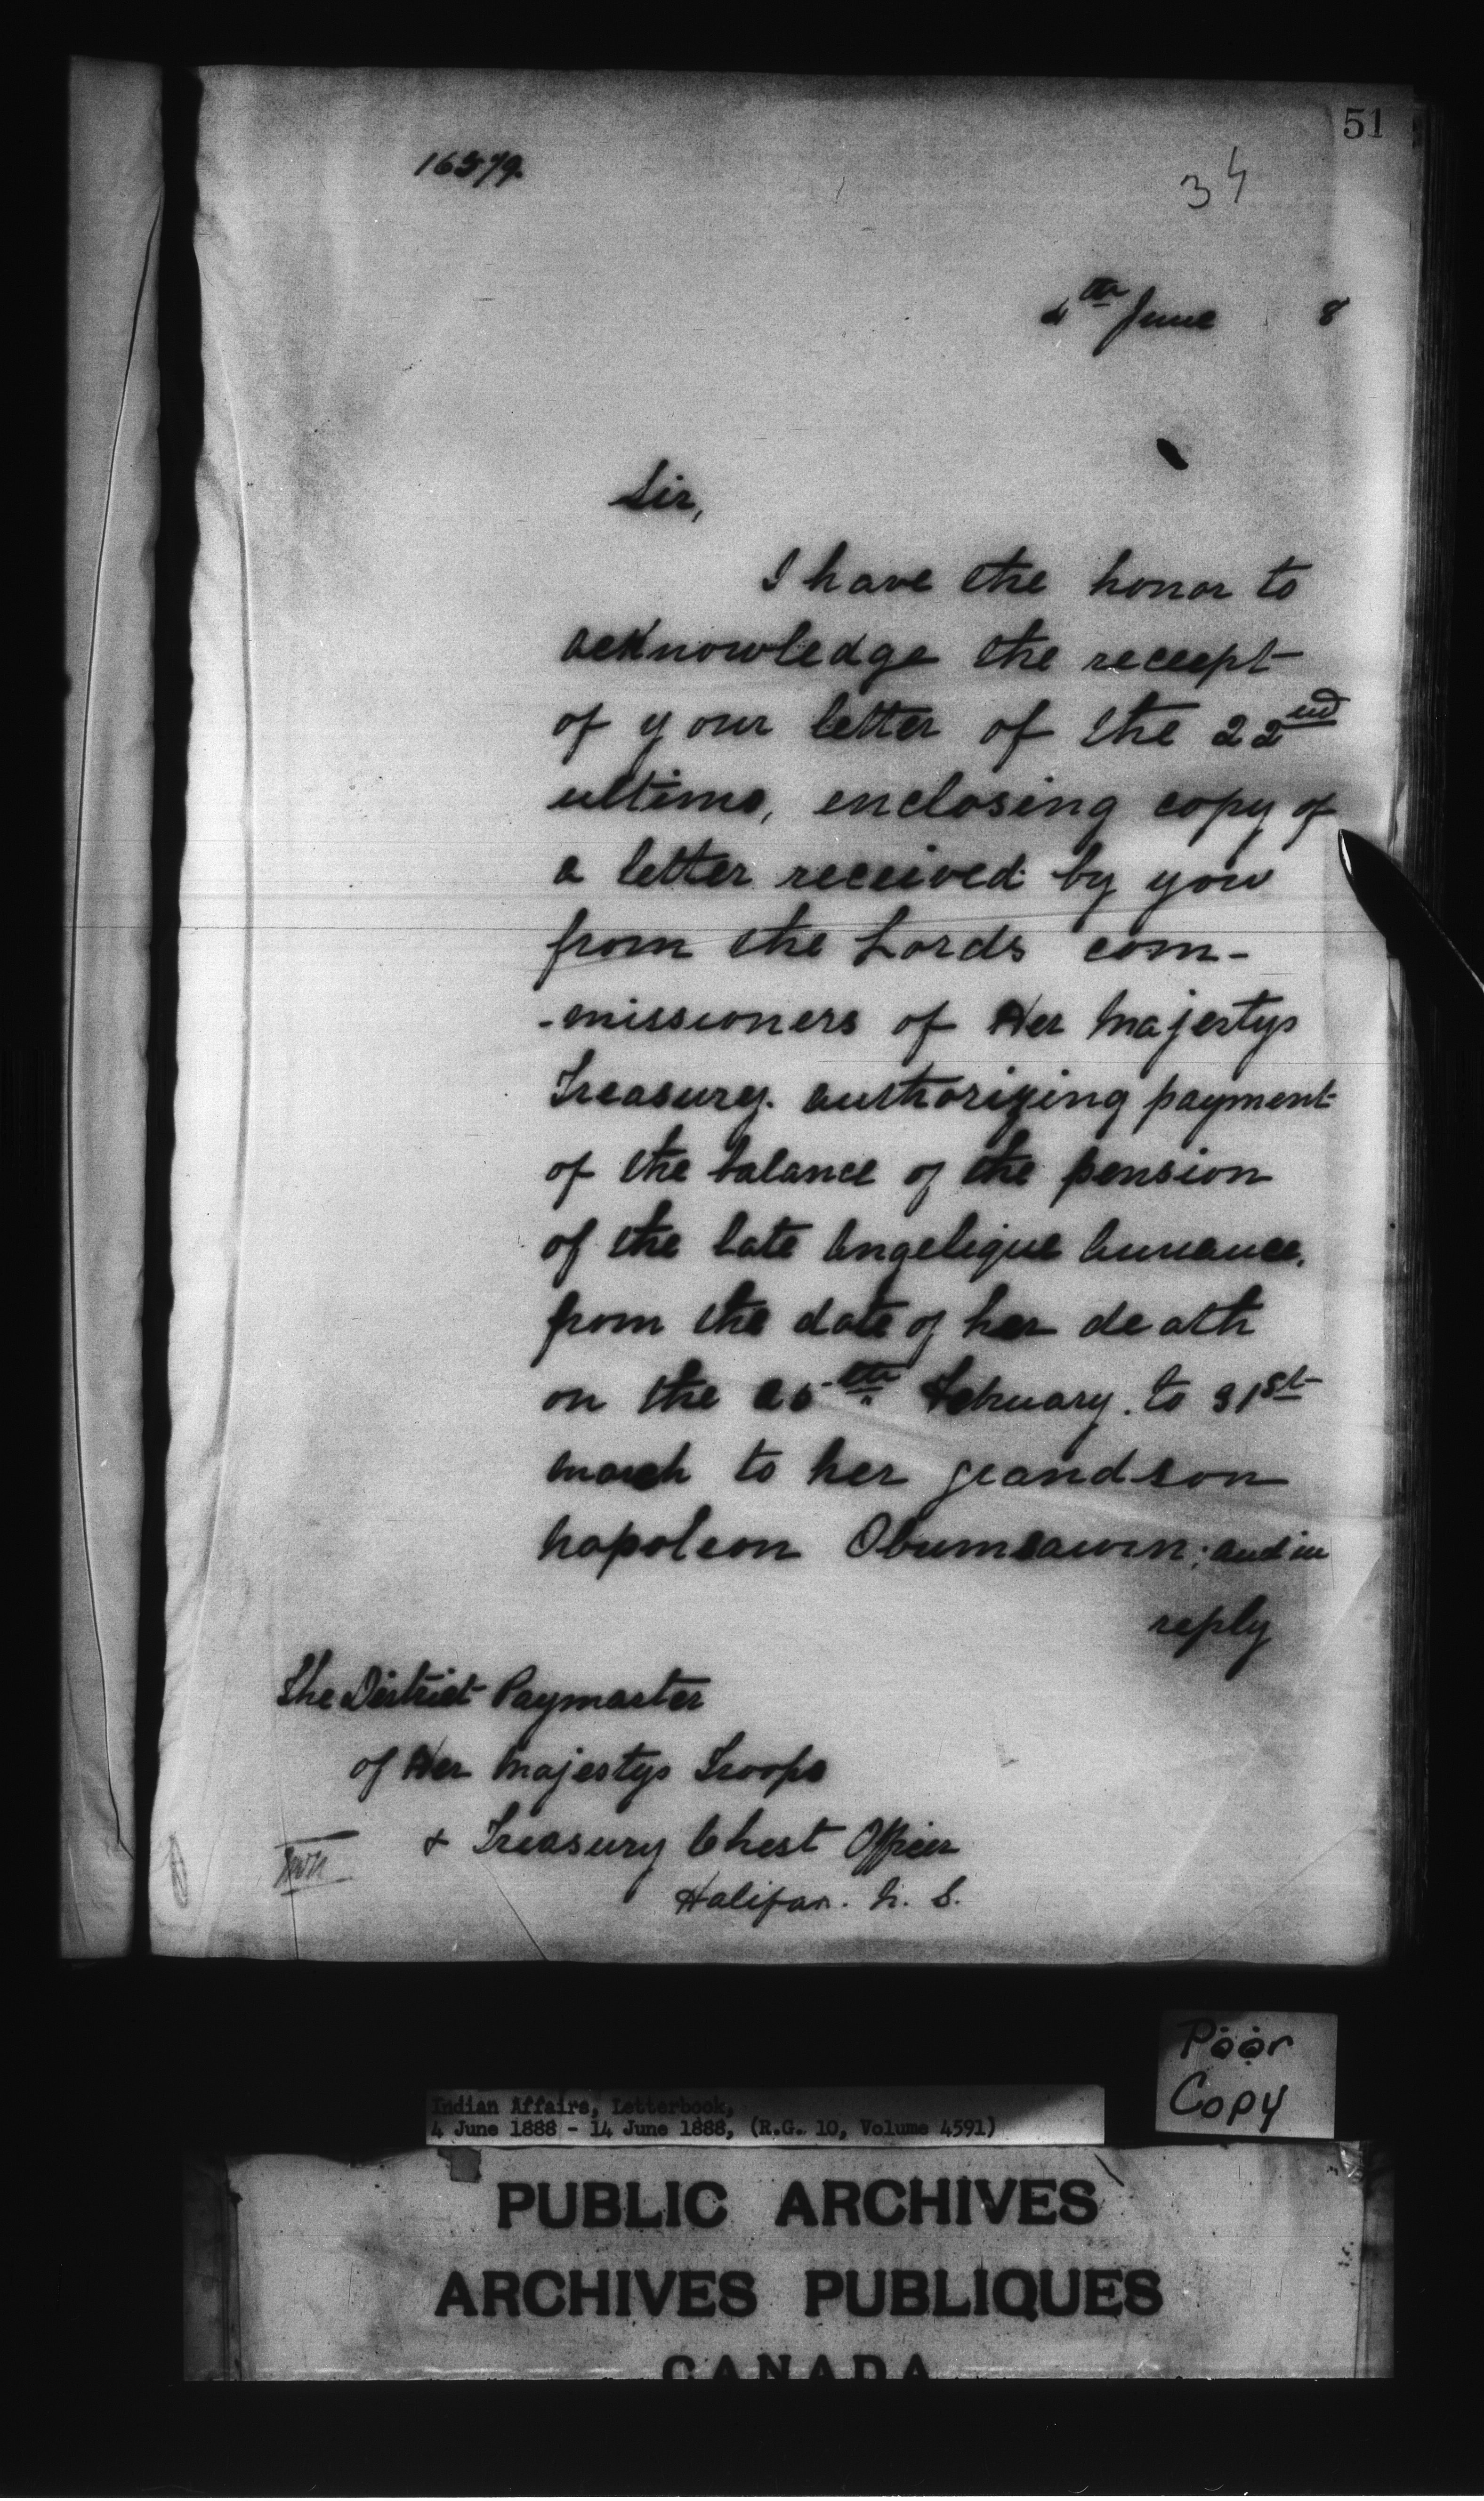 51
16579.
34
4th June 8
Sir,
I have the honor to
acknowledge the receept
of your letter of the 22nd
ultimo, enclosing copy of
a letter received by you
from the Lords com-
-missioners of Her Majestys
Treasury. authorizing payment
of the balance of the pension
of the late Angelique
from the date of her death
on the 25th February. to 31st
March to her grandson
Napoleon Obumsawin; and in
reply
The District Paymaster
of Her Majestys Troops
& Treasury Chest Officer
Halifax. N. S.
Poor
Copy
Indian Affairs, Letterbook,
4 June 1888 - 14 June 1888, (R.G. 10, Volume 4591)
PUBLIC ARCHIVES
ARCHIVES PUBLIQUES
CANADA